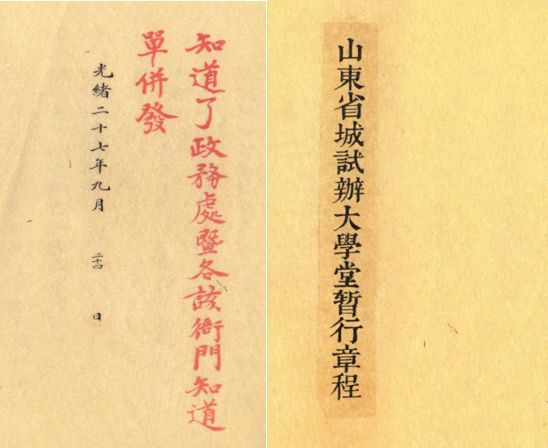 知道了政務處暨各該衙門知道
單併發
光緒二十七年九月 二十四 日
山東省城試辦大學堂暫行章程